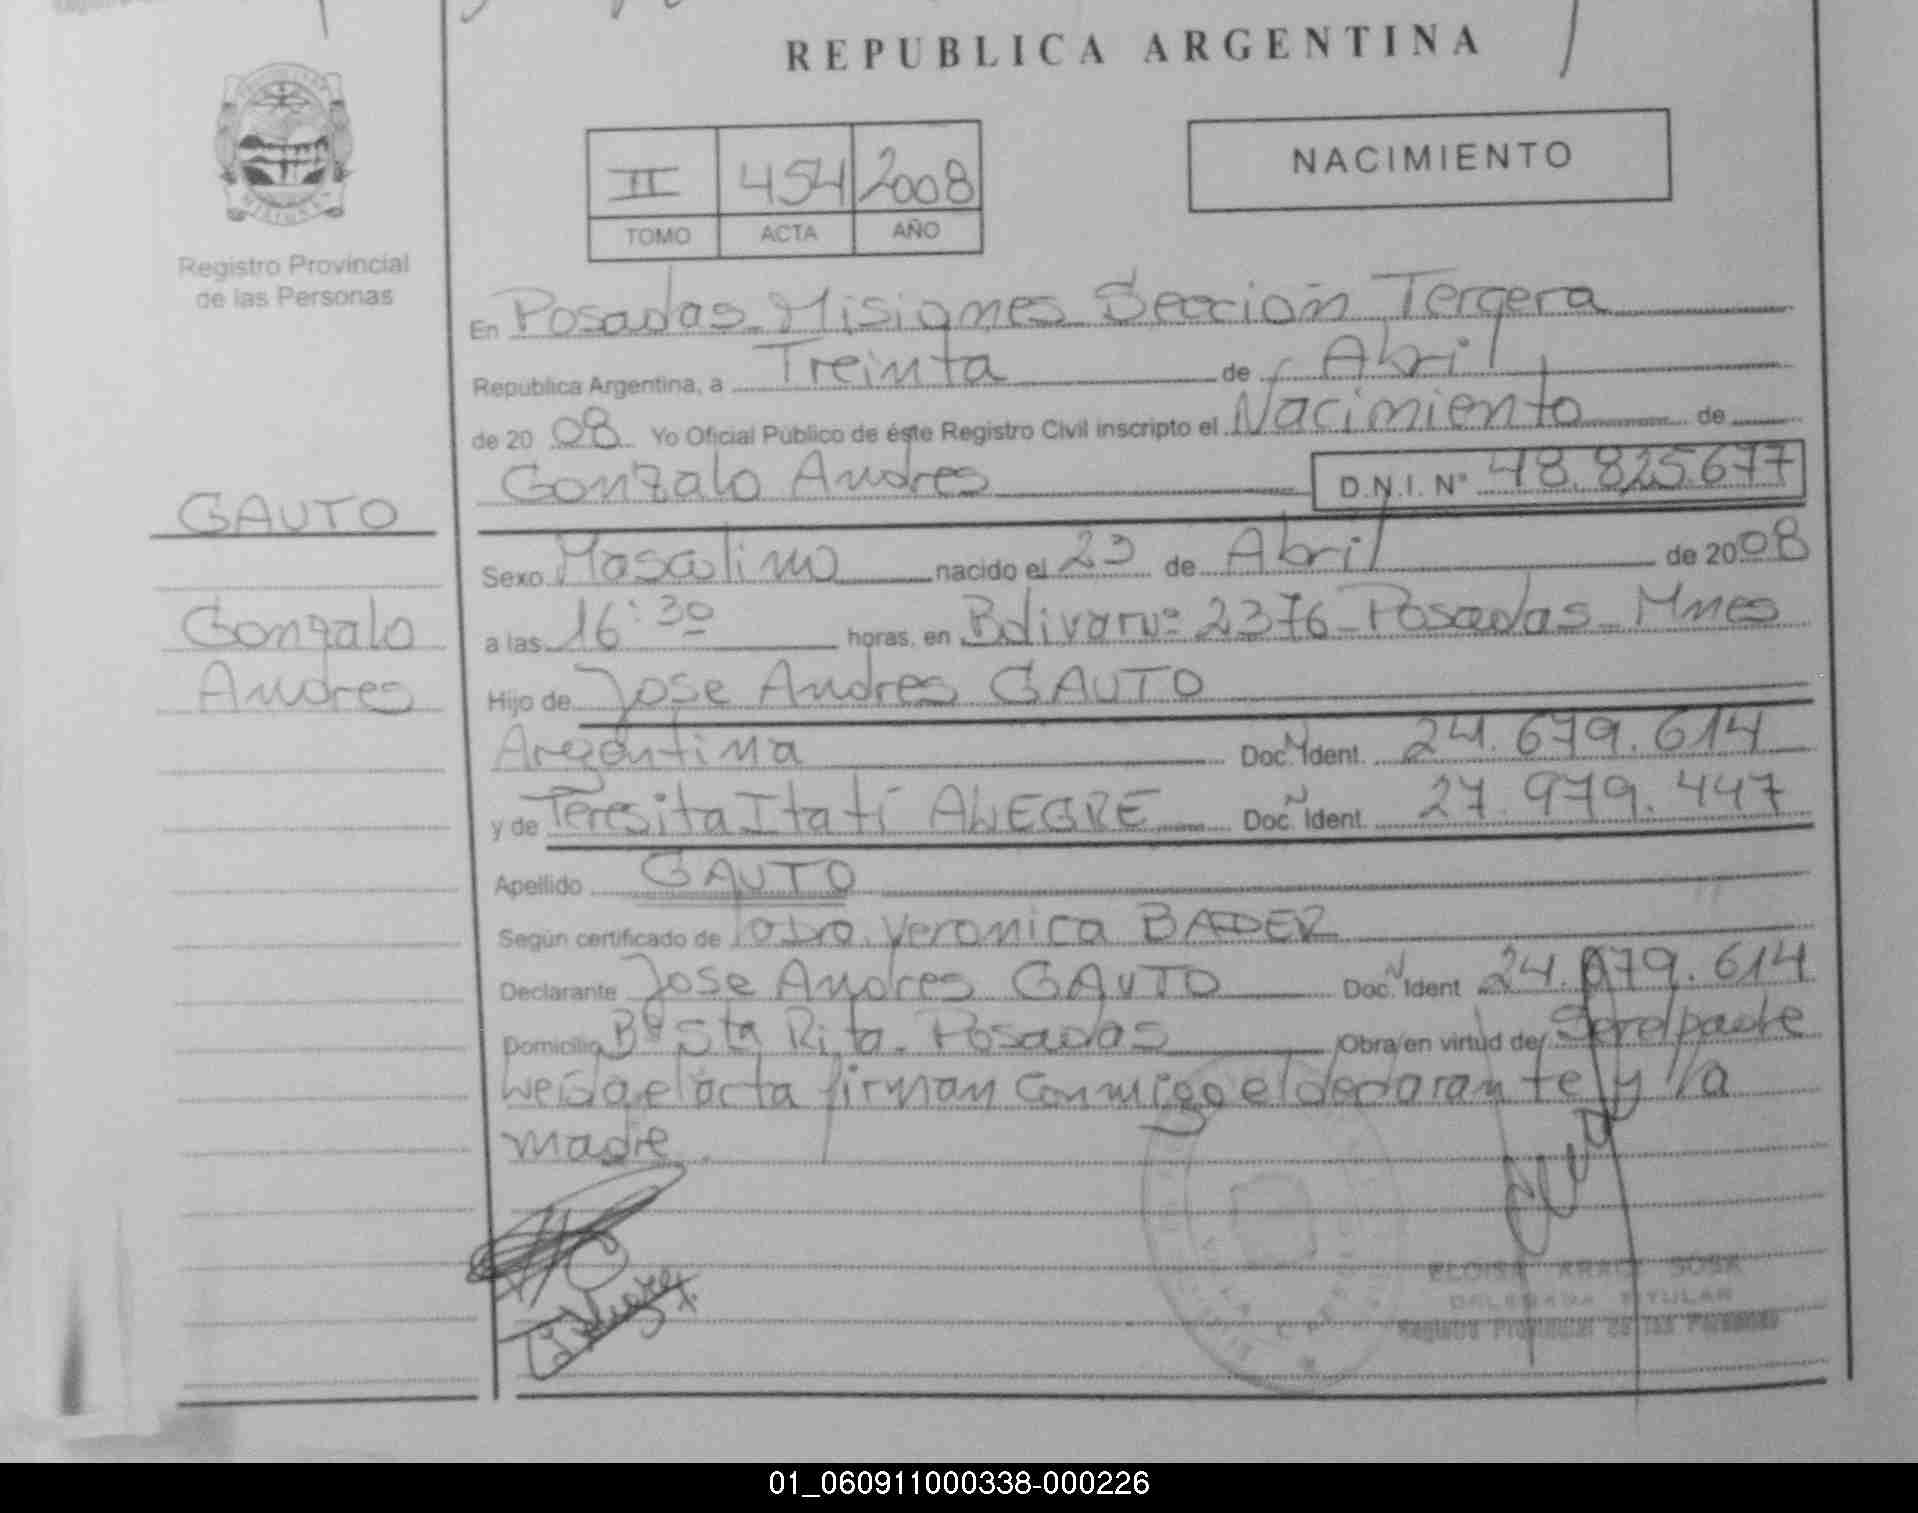 REPUBLICA ARGENTINA
NACIMIENTO
II 454 2008
TOMO ACTA AÑO
Registro Provincial
de las Personas
En Posadas Misiones Sección Tercera
República Argentina, a Treinta de Abril
de 2008 Yo Oficial Público de éste Registro Civil inscripto el Nacimiento de
Gonzalo Andres D.N.I. Nº 48.825.677
GAUTO
Gonzalo
Andres
Sexo Masculino nacido el 23 de Abril de 2008
a las 16:30 horas, en Bolivar nº 2376 - Posadas - Mnes
Hijo de Jose Andres GAUTO
Argentina Doc. N Ident. 24.679.614
y de Teresita Itatí ALEGRE Doc. N Ident. 27.979.447
Apellido GAUTO
Según certificado de Veronica BADER
Declarante Jose Andres GAUTO Doc. N Ident 24.679.614
Domicilio Bº Sta Rita. Posadas Obra en virtud de Ser el padre
Leida el acta firman conmigo el declarante y la
madre.
ELOISA ARACI SOSA
DELEGADA TITULAR
Registro Provincial de las Personas
01_060911000338-000226